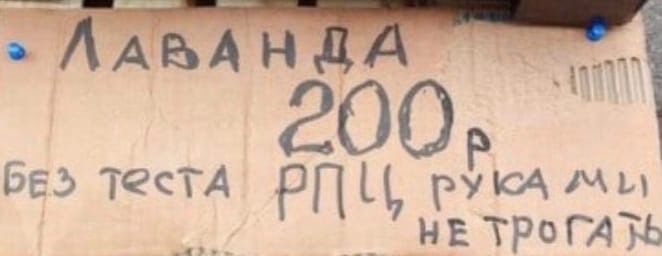 ЛАВАНДА
200р
БЕЗ ТеСТА РПЦ РУКАМИ
НЕ ТРОГАТЬ